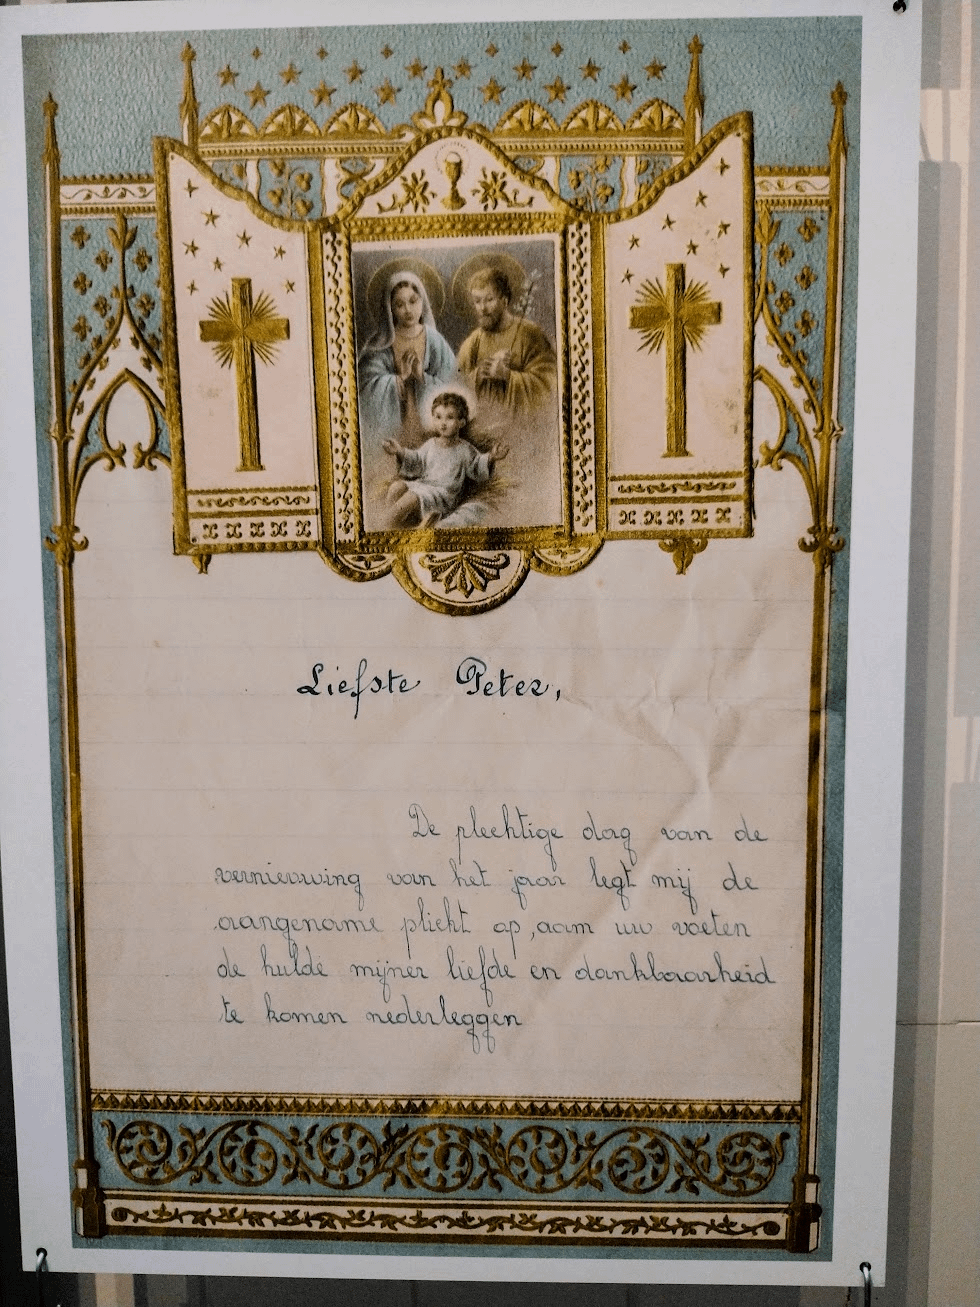 Liefste Peter,
De plechtige dag van de
vernieuwing van het jaar legt mij de
aangename plicht op, aan uw voeten
de hulde mijner liefde en dankbaarheid
te komen nederleggen